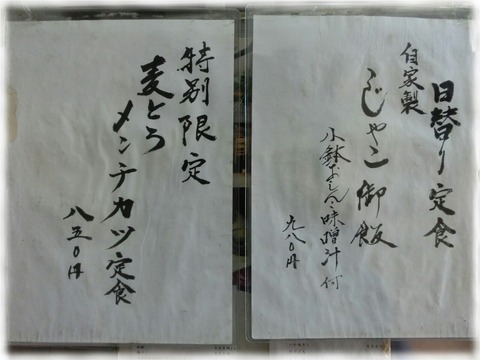 日替り定食
自家製
じゃこ御飯
小鉢おしんこ味噌汁付
九八〇円
特別限定
麦とろ
メンチカツ定食
八五〇円